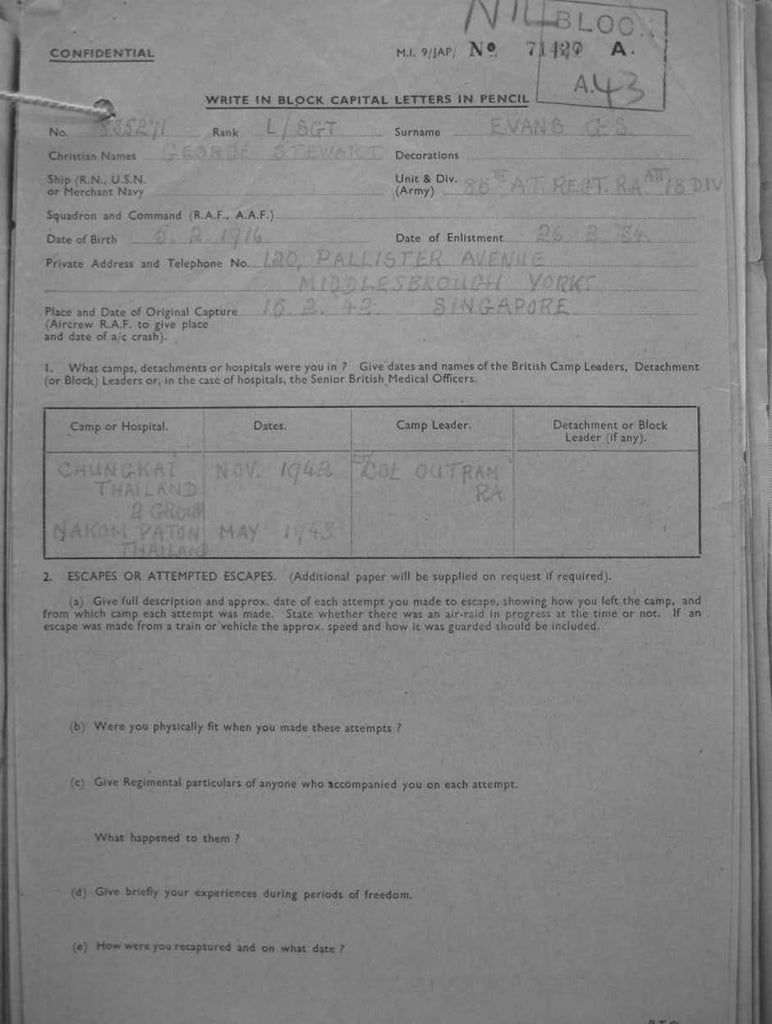 NIL BLOC
CONFIDENTIAL M.I. 9/JAP/ No 71420 A.
A.43
WRITE IN BLOCK CAPITAL LETTERS IN PENCIL
No. 885271 Rank L/SGT Surname EVANS G.S.
Christian Names GEORGE STEWART Decorations
Ship (R.N., U.S.N. Unit & Div. 85TH A.T. REGT. RA ATT 18 DIV
or Merchant Navy (Army)
Squadron and Command (R.A.F., A.A.F.)
Date of Birth 5.2.1916 Date of Enlistment 26 3 34.
Private Address and Telephone No. 120, PALLISTER AVENUE
MIDDLESBROUGH YORKS
Place and Date of Original Capture 15.2.42. SINGAPORE
(Aircrew R.A.F. to give place
and date of a/c crash).
1. What camps, detachments or hospitals were you in ? Give dates and names of the British Camp Leaders, Detachment
(or Block) Leaders or, in the case of hospitals, the Senior British Medical Officers.
Camp or Hospital. Dates. Camp Leader. Detachment or Block
Leader (if any).
CHUNGKAI NOV. 1942 COL OUTRAM
THAILAND RA
2 GROUP
NAKOM PATON MAY 1943
THAILAND
2. ESCAPES OR ATTEMPTED ESCAPES. (Additional paper will be supplied on request if required).
(a) Give full description and approx. date of each attempt you made to escape, showing how you left the camp, and
from which camp each attempt was made. State whether there was an air-raid in progress at the time or not. If an
escape was made from a train or vehicle the approx. speed and how it was guarded should be included.
(b) Were you physically fit when you made these attempts ?
(c) Give Regimental particulars of anyone who accompanied you on each attempt.
What happened to them ?
(d) Give briefly your experiences during periods of freedom.
(e) How were you recaptured and on what date ?